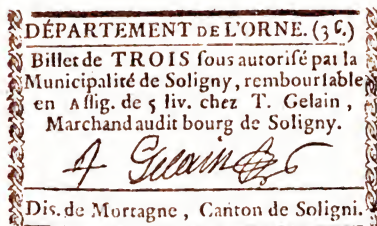 DÉPARTEMENT DE L'ORNE. (36.)
Billet de TROIS sous autorisé pai la
Municipalité de Soligny, remboursable
en Assig. de 5 liv. chez T. Gelain,
Marchand audit bourg de Soligny.
Gelain
Dis. de Mortagne, Canton de Soligni.